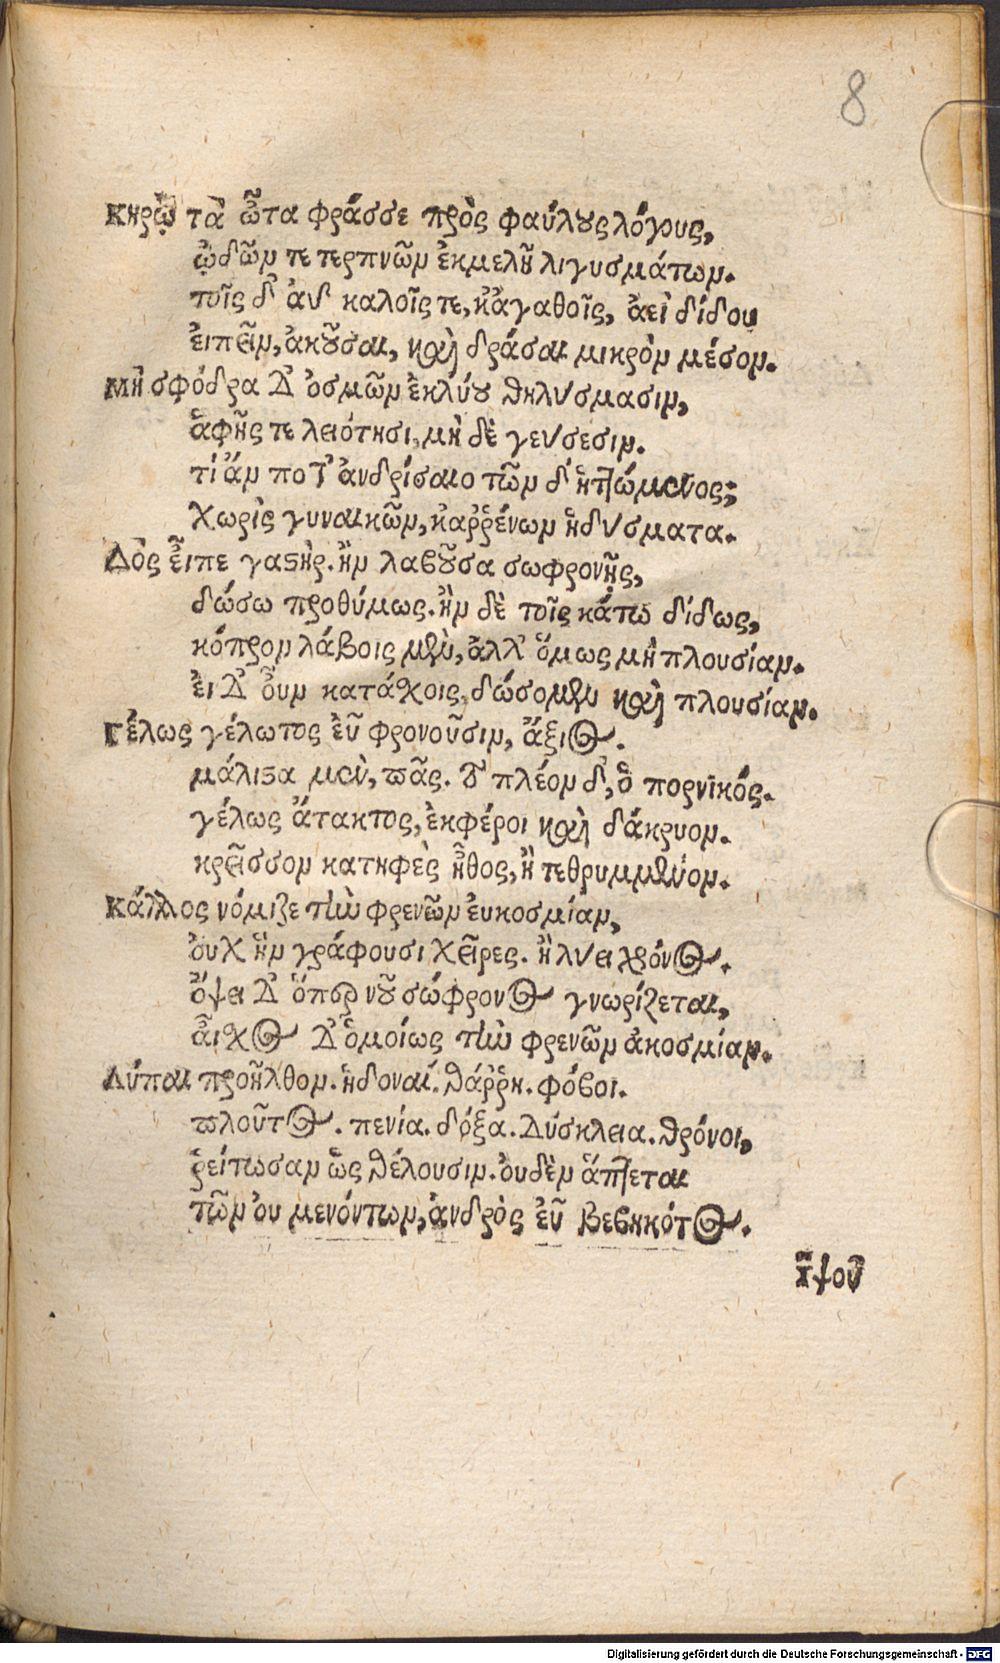 8
Κηρῷ τὰ ὦτα φράσσε πρὸς φαύλους λόγους,
ᾠδῶν τε τερπνῶν ἐκμελοῦ λιγυσμάτων.
τοῖς δ' ἀυ καλοῖς τε, κἀγαθοῖς, ἀεὶ δίδου
ἐιπεῖν, ἀκοῦσαι, καὶ δράσαι μικρὸν μέσον.
Μὴ σφόδρα δ' ὀσμῶν ἐκλύου θηλυσμασιν,
ἁφῆς τε λειότησι, μὴ δὲ γευσεσιν.
τί ἂν ποτ' ἀνδρίσαιο τῶν δ' ἡττώμενος;
χωρὶς γυναικῶν, κἀῤῥένων ἡδυσματα.
Δὸς εἶπε γαστὴρ. ἢν λαβοῦσα σωφρονῇς,
δώσω προθύμως. ἢν δὲ τοῖς κάτω δίδως,
κόπρον λάβοις μὲν, ἀλλ' ὅμως μὴ πλουσίαν.
ἐι δ' οὖν κατάχοις, δώσομεν καὶ πλουσίαν.
Γέλως γέλωτος ἐῦ φρονοῦσιν, ἄξιος.
μάλιστα μὲν, πᾶς. τὸ πλέον δ', ὁ πορνικός.
γέλως ἄτακτος, ἐκφέροι καὶ δάκρυον.
κρεῖσσον κατηφὲς ἦθος, ἢ τεθρυμμένον.
Κάλλος νόμιζε τὴν φρενῶν ἐυκοσμίαν,
ὀυχ ἣν γράφουσι χεῖρες. ἢ λυει χρόνος.
ὄψει δ' ὅπερ νοῦ σώφρονος γνωρίζεται,
αἶχος δ' ὁμοίως τὴν φρενῶν ἀκοσμίαν.
Λύπαι προῆλθον. ἡδοναί. θάῤῥη. φόβοι.
πλοῦτος. πενία. δόξα. Δύσκλεια. θρόνοι,
ῥείτωσαν ὡς θέλουσιν. ὀυδὲν ἅπτεται
τῶν ὀυ μενόντων, ἀνδρὸς ἐῦ βεβηκότος.
Ὕψου
Digitalisierung gefördert durch die Deutsche Forschungsgemeinschaft - DFG